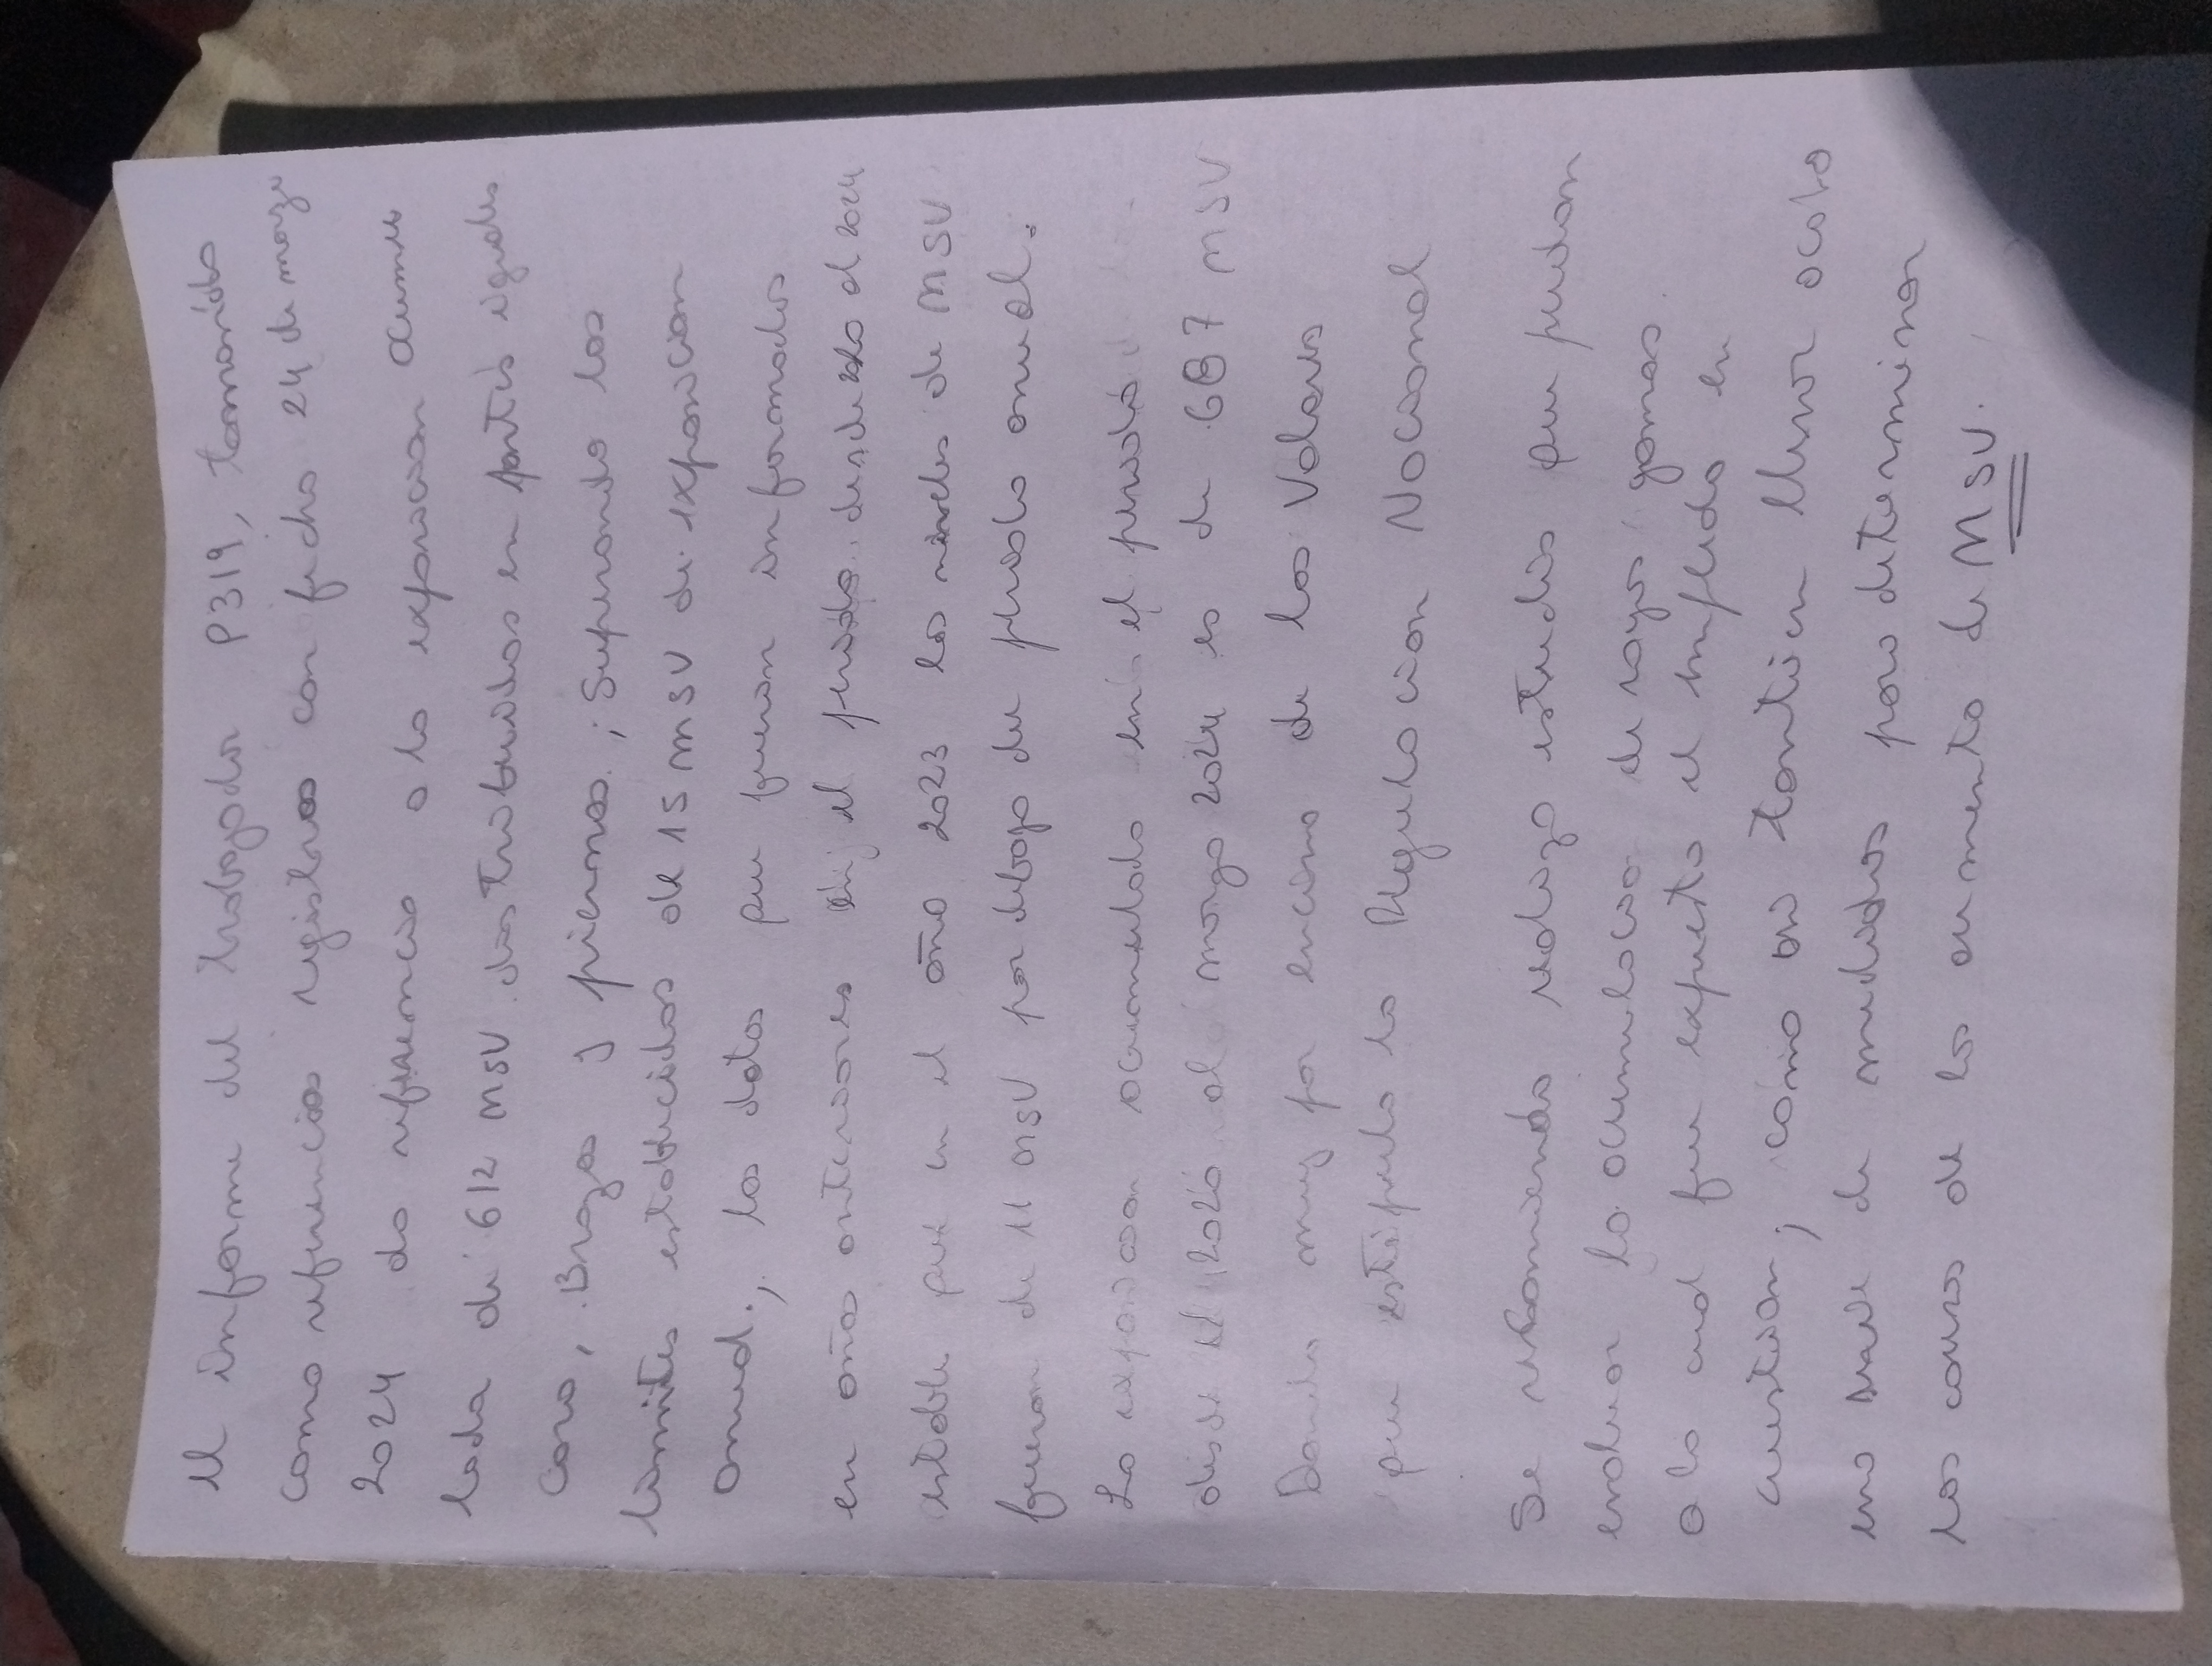 El informe del trabajador P319, tomando
como referencias registros con fecha 24 de marzo
2024 da referencia a la exposicion acumu
lada de 612 MSV distribuidos en partes iguales
cara, Brazos y piernas.; Superando los
limites establecidos de 15 MSV de exposicion
anual., los datos que fueron informados
en años anteriores en el periodo desde 2020 al 2024
estable que en el año 2023 los niveles de MSV
fueron de 11 MSV por debajo del periodo anual.
La exposicion acumulada en el periodo
desde el 2020 al marzo 2024 es de 687 MSV
Dando muy por encima de los Valores
que estipula la Regulacion Nacional
Se recomienda realiza estudios que puedan
evaluar la acumulacion de rayos gamas
a la cual fue expuesto el empledo en
cuestion; como asi tantien llevar acabo
una serie de medidas para determinar
las causas de los aumento de MSV.